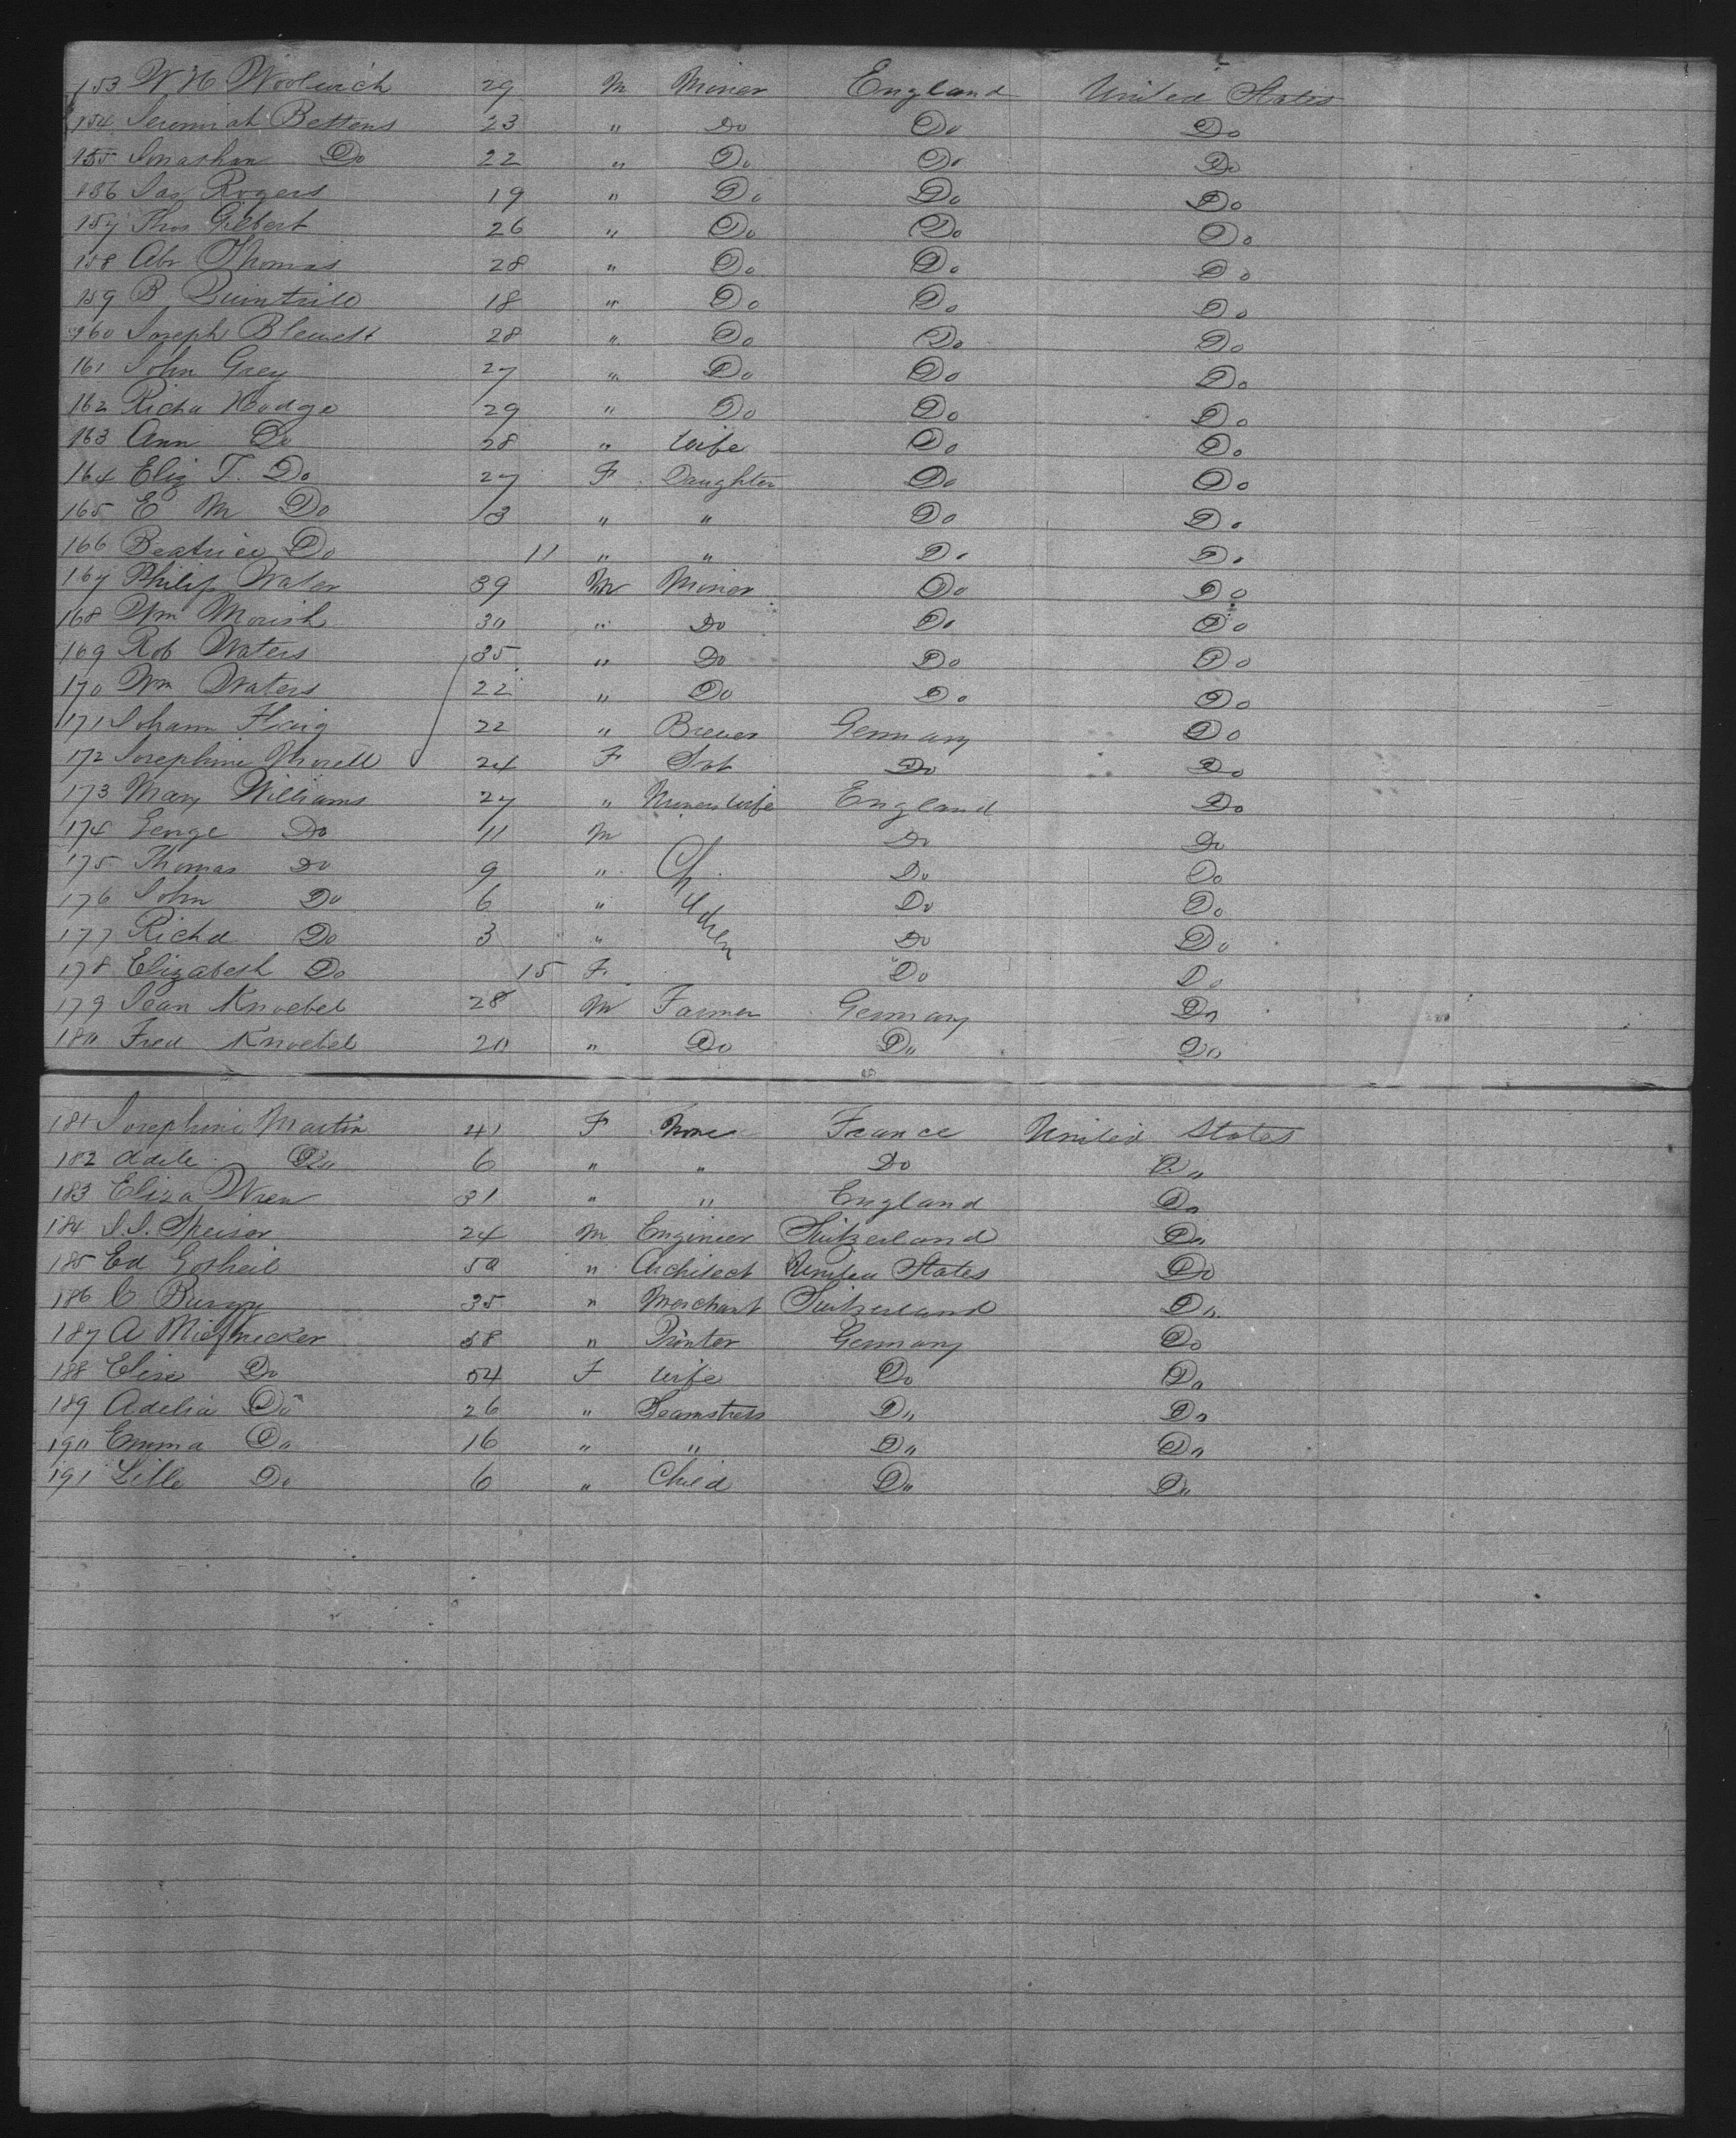 153 W H Woolwich 29 M Miner England United States
154 Jeremiah Bettens 23 " Do Do Do
155 Jonathan Do 22 " Do Do Do
156 Jas Rogers 19 " Do Do Do
157 Thos Gilbert 26 " Do Do Do
158 Abr Thomas 28 " Do Do Do
159 B Quintrill 18 " Do Do Do
160 Joseph Blewett 28 " Do Do Do
161 John Grey 27 " Do Do Do
162 Richd Hodge 29 " Do Do Do
163 Ann Do 28 " Wife Do Do
164 Eliz T. Do 27 F Daughter Do Do
165 E M Do 3 " " Do Do
166 Beatrice Do 11 " " Do Do
167 Philip Water 39 M Miner Do Do
168 Wm Morish 30 " Do Do Do
169 Rob Waters 35 " Do Do Do
170 Wm Waters 22 " Do Do Do
171 Johann Flaig 22 " Brewer Germany Do
172 Josephine 24 F Do Do
173 Mary Williams 27 " Miners Wife England Do
174 George Do 11 M Do Do
175 Thomas Do 9 " Children Do Do
176 John Do 6 " Do Do
177 Richd Do 3 " Do Do
178 Elizabeth Do 15 F Do Do
179 Jean Knoebel 28 M Farmer Germany Do
180 Fred Knoebel 20 " Do Do Do
181 Josephine Martin 41 F None France United States
182 Adele Do 6 " " Do Do
183 Eliza Wren 31 " " England Do
184 J. J. Speiser 24 M Engineer Switzerland Do
185 Ed 50 " Architect United States Do
186 C Burgy 35 " Merchant Switzerland Do
187 A 58 " Printer Germany Do
188 Elise Do 54 F Wife Do Do
189 Adelia Do 26 " Seamstress Do Do
190 Emma Do 16 " " Do Do
191 Lille Do 6 " Child Do Do